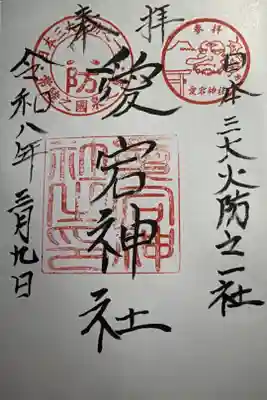 奉拝
日本三大火防之一社
愛宕神社
令和八年 三月九日
防
参拝
愛宕神社